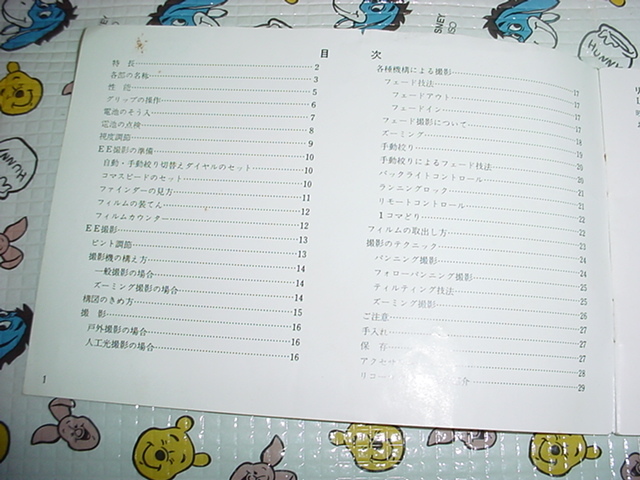 目 次
特 長 2
各部の名称 3
性 能 5
グリップの操作 6
電池のそう入 7
電池の点検 8
視度調節 9
EE撮影の準備 10
自動・手動絞り切替えダイヤルのセット 10
コマスピードのセット 10
ファインダーの見方 11
フィルムの装てん 12
フィルムカウンター 12
EE撮影 13
ピント調節 13
撮影機の構え方 14
一般撮影の場合 14
ズーミング撮影の場合 14
構図のきめ方 15
撮 影 16
戸外撮影の場合 16
人工光撮影の場合 16
1
各種機構による撮影 17
フェード技法 17
フェードアウト 17
フェードイン 17
フェード撮影について 18
ズーミング 18
手動絞り 19
手動絞りによるフェード技法 20
バックライトコントロール 20
ランニングロック 21
リモートコントロール 21
1コマどり 22
フィルムの取出し方 22
撮影のテクニック 23
パンニング撮影 24
フォローパンニング撮影 24
ティルティング技法 25
ズーミング撮影 25
ご注意 26
手入れ 27
保 存 27
アクセサ 28
リコー 介 29
HUNNY